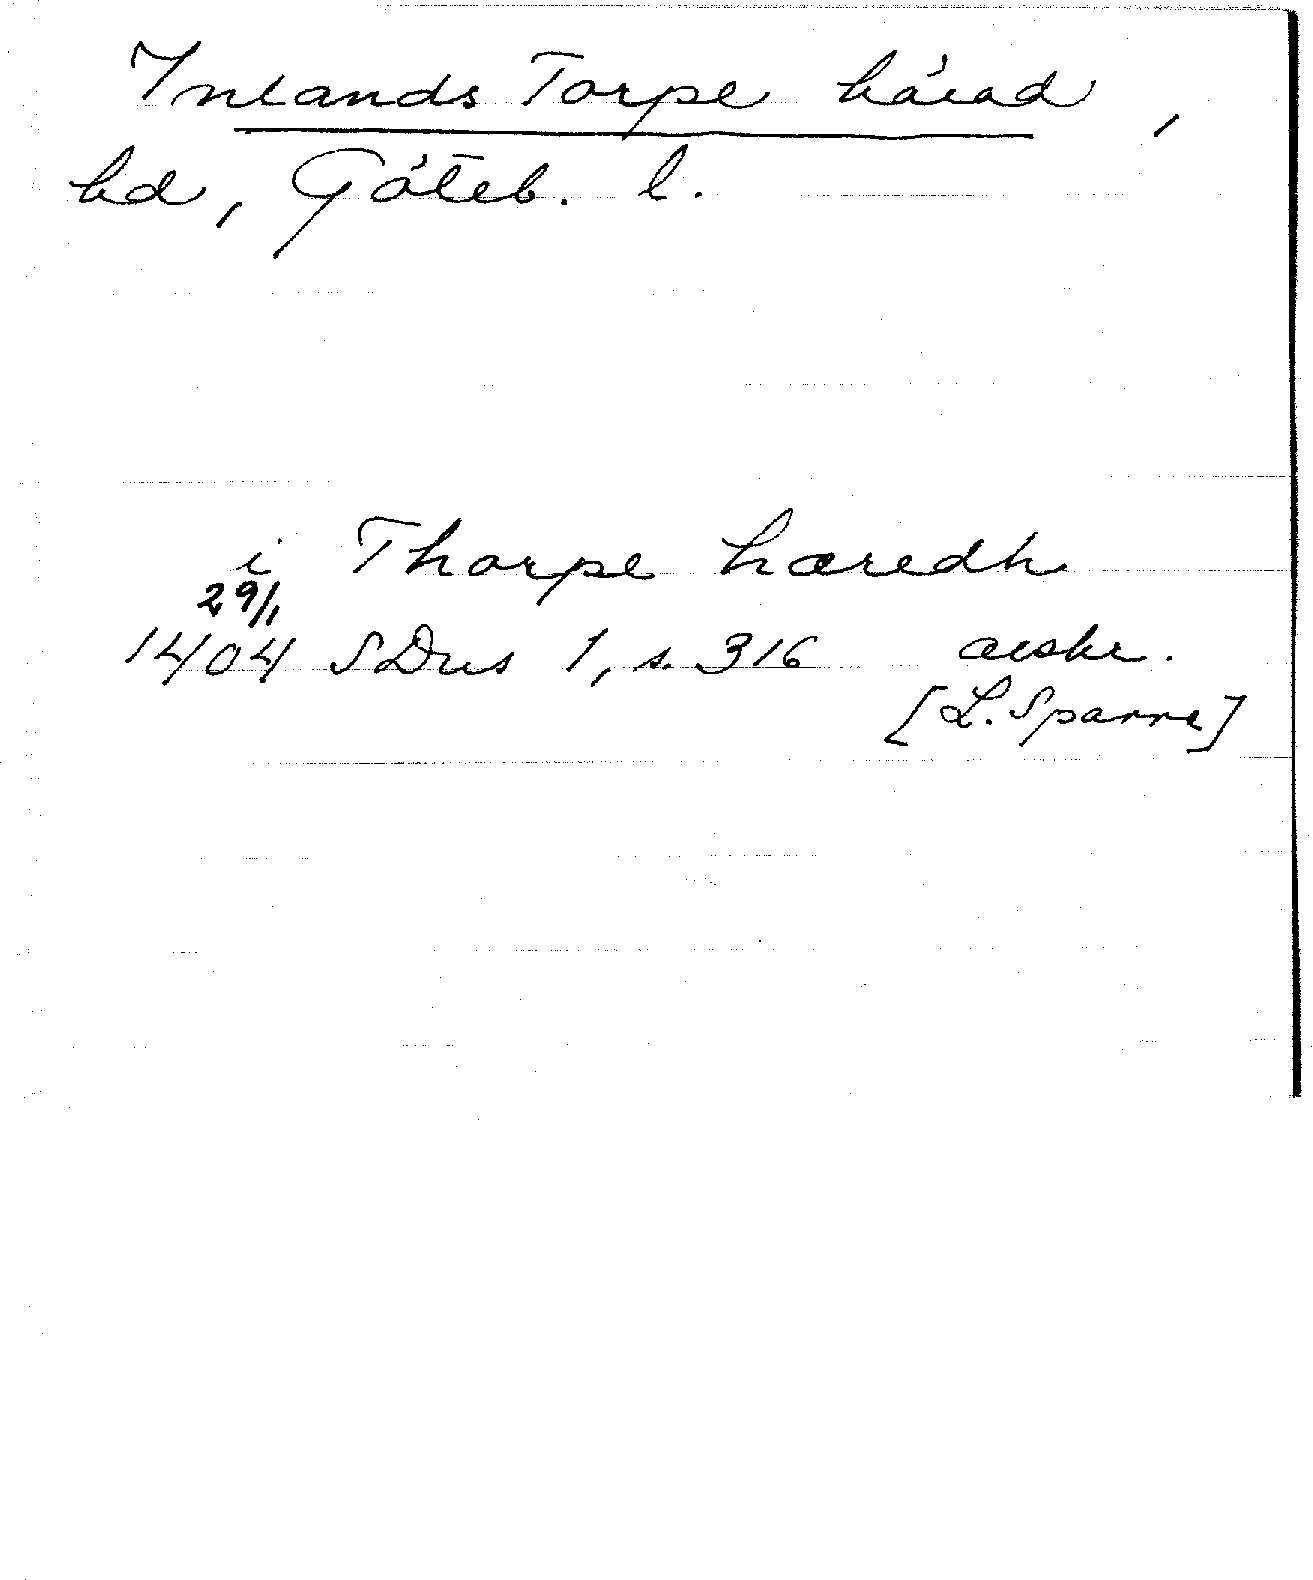 Inlands Torpe härad,
hd, Göteb. l.
i Thorpe hæredh
29/1
1404 SDns 1, s. 316 avskr.
[L. Sparre]